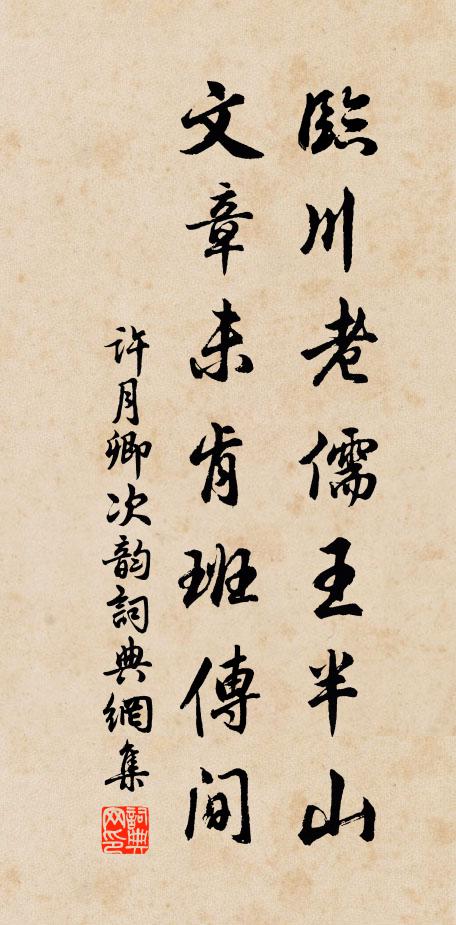 臨川老儒王半山
文章未肯班傳間
許月卿次韵詞典網集
詞典网印